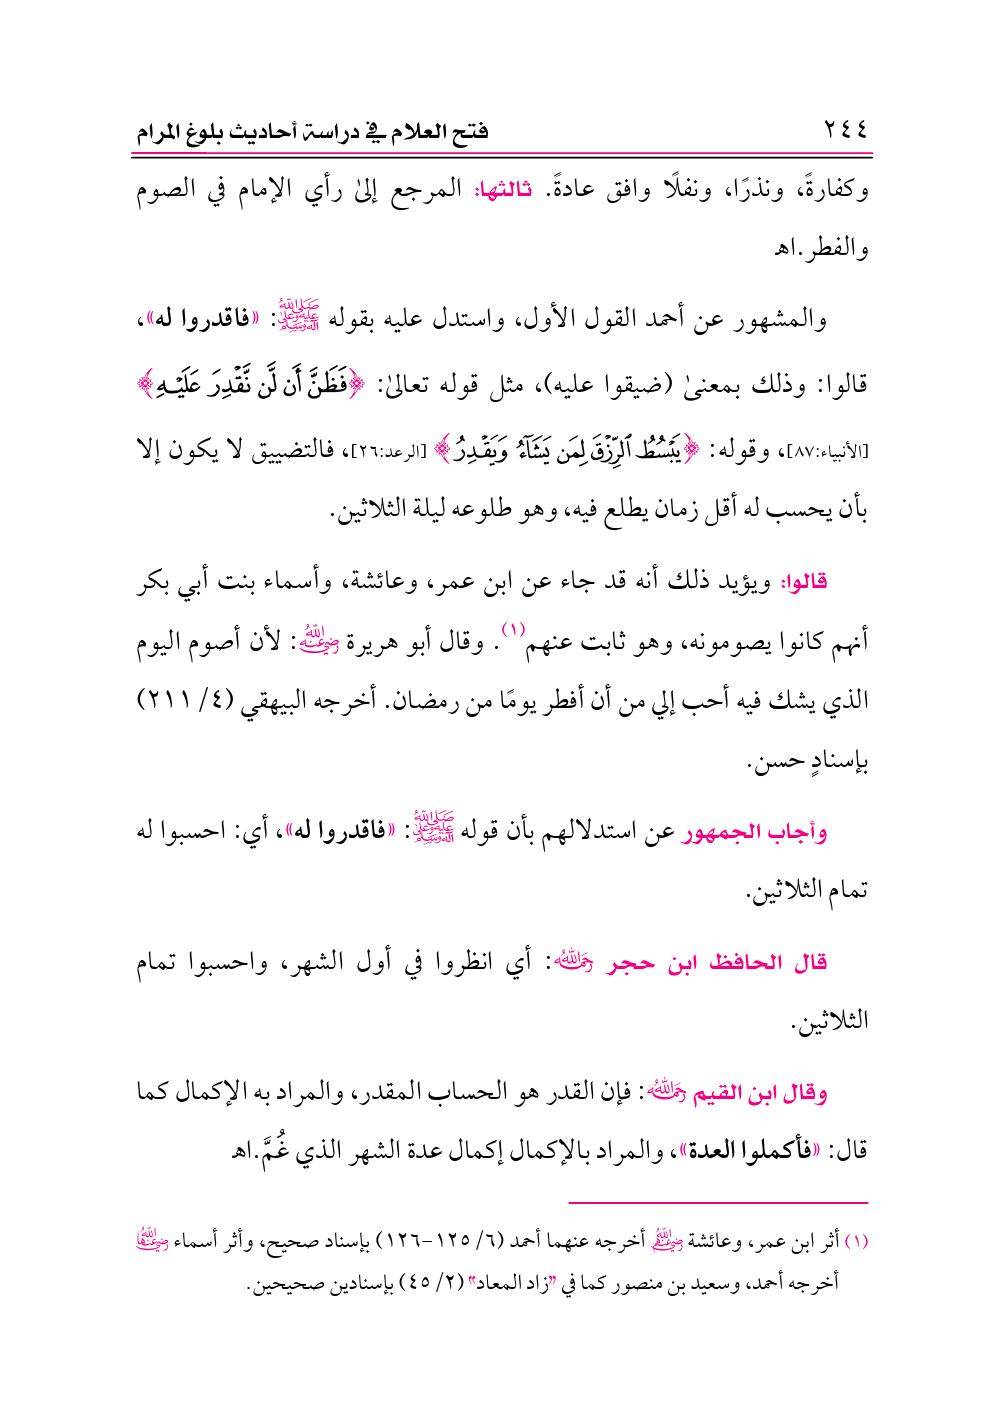 ٢٤٤
فتح العلام في دراسة أحاديث بلوغ المرام
وكفارةً، ونذرًا، ونفلًا وافق عادةً. ثالثها: المرجع إلىٰ رأي الإمام في الصوم
والفطر.اهـ
والمشهور عن أحمد القول الأول، واستدل عليه بقوله ﷺ: «فاقدروا له»،
قالوا: وذلك بمعنىٰ (ضيقوا عليه)، مثل قوله تعالىٰ: ﴿فَظَنَّ أَن لَّن نَّقْدِرَ عَلَيْهِ﴾
[الأنبياء:٨٧]، وقوله: ﴿يَبْسُطُ ٱلرِّزْقَ لِمَن يَشَآءُ وَيَقْدِرُ﴾ [الرعد:٢٦]، فالتضييق لا يكون إلا
بأن يحسب له أقل زمان يطلع فيه، وهو طلوعه ليلة الثلاثين.
قالوا: ويؤيد ذلك أنه قد جاء عن ابن عمر، وعائشة، وأسماء بنت أبي بكر
أنهم كانوا يصومونه، وهو ثابت عنهم(١). وقال أبو هريرة رضي الله عنه: لأن أصوم اليوم
الذي يشك فيه أحب إلي من أن أفطر يومًا من رمضان. أخرجه البيهقي (٤/ ٢١١)
بإسنادٍ حسن.
وأجاب الجمهور عن استدلالهم بأن قوله ﷺ: «فاقدروا له»، أي: احسبوا له
تمام الثلاثين.
قال الحافظ ابن حجر رحمه الله: أي انظروا في أول الشهر، واحسبوا تمام
الثلاثين.
وقال ابن القيم رحمه الله: فإن القدر هو الحساب المقدر، والمراد به الإكمال كما
قال: «فأكملوا العدة»، والمراد بالإكمال إكمال عدة الشهر الذي غُمَّ.اهـ
(١) أثر ابن عمر، وعائشة رضي الله عنهم أخرجه عنهما أحمد (٦/ ١٢٥-١٢٦) بإسناد صحيح، وأثر أسماء رضي الله عنها
أخرجه أحمد، وسعيد بن منصور كما في "زاد المعاد" (٢/ ٤٥) بإسنادين صحيحين.